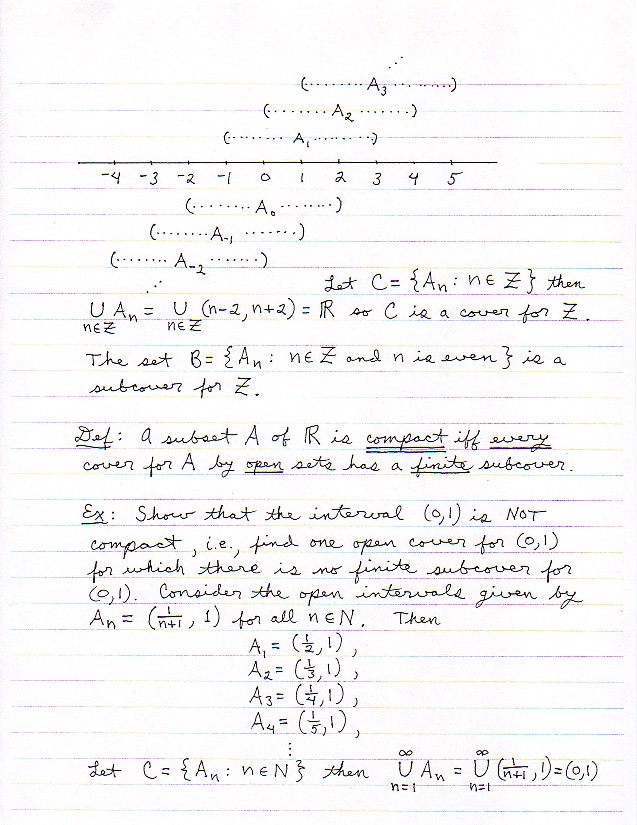 ⋰
(········ A₃ ··········)
(········ A₂ ·······)
(········ A₁ ·······)
-4 -3 -2 -1 0 1 2 3 4 5
(········ A₀ ·······)
(········ A₋₁ ·······)
(········ A₋₂ ·······)
⋰ Let C = {Aₙ : n ∈ Z} then
∪ Aₙ = ∪ (n-2, n+2) = ℝ so C is a cover for Z.
n∈Z n∈Z
The set B = {Aₙ : n ∈ Z and n is even} is a
subcover for Z.
Def: A subset A of ℝ is compact iff every
cover for A by open sets has a finite subcover.
Ex: Show that the interval (0,1) is NOT
compact, i.e., find one open cover for (0,1)
for which there is no finite subcover for
(0,1). Consider the open intervals given by
Aₙ = (1/n+1, 1) for all n ∈ N. Then
A₁ = (1/2, 1),
A₂ = (1/3, 1),
A₃ = (1/4, 1),
A₄ = (1/5, 1),
⋮
Let C = {Aₙ : n ∈ N} then ∞∪n=1 Aₙ = ∞∪n=1 (1/n+1, 1) = (0,1)